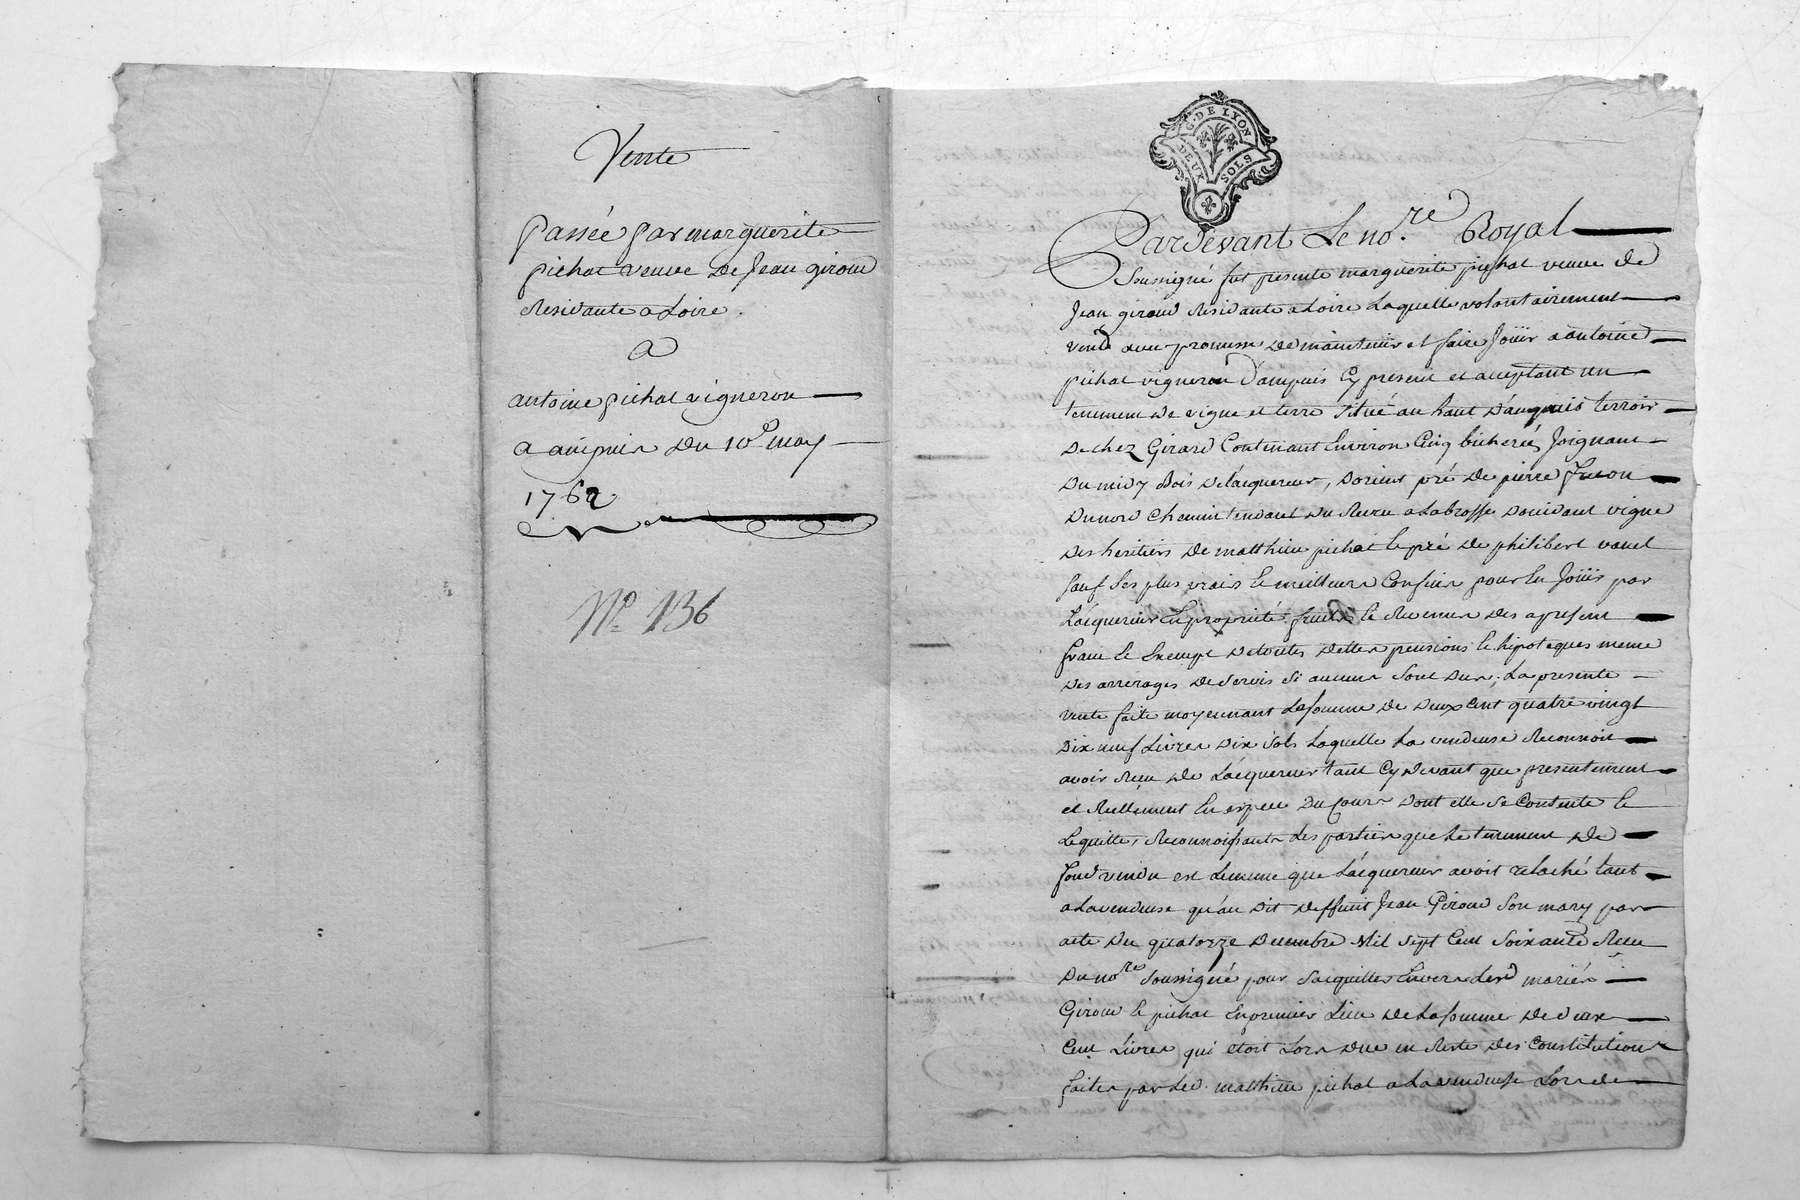 Vente
passée par marguerite
pichat veuve De Jean giroud
Residante a Loire.
a
antoine pichat vigneron
a ampuis Du 10e may
1762
No. 136
G. DE LYON
DEUX SOLS
Pardevant Le no.re Royal
Soussigné fut presente marguerite pichat veuve de
Jean giroud Residante a Loire Laquelle volontairement
vend avec promesse De maintenir et faire Joüir a antoine
pichat vigneron D'ampuis Cy present et acceptant un
tenement De vigne et terre situé au haut D'ampuis terroir
De chez Girard Contenant Environ Cinq bicherées Joignant
Du midy Bois De l'acquereur, D'orient pré De pierre
Du nord Chemin tendant Du Recru a Labrosse D'occident vigne
Des heritiers De matthieu pichat le pré De philibert vanel
sauf Ses plus vrais Et meilleurs Confins pour En Joüir par
L'acquereur En proprieté fruits Et Revenus Des a present
franc Et Exempt De toutes Dettes pensions Et hipoteques meme
Des arrerages De Servis Si aucuns Sont Dus; La presente
vente faite moyennant La somme De Deux Cent quatre vingt
Dix neuf Livres Dix Sols Laquelle La vendeuse Reconnoit
avoir Reçu De L'acquereur tant Cy Devant que presentement
et Reellement En espece Du Cours Dont elle Se Contente Et
L'en quitte, Reconnoissants Les parties que Le tenement De
fond vendu est Le meme que L'acquereur avoit relaché tant
a La vendeuse qu'au Dit Deffunt Jean Giroud Son mary par
acte Du quatorze Decembre Mil Sept Cent Soixante Recu
Du no.re Soussigné pour S'acquitter Envers Lesd mariés
Giroud Et pichat En premier Lieu De La somme De Deux
Cent Livres qui etoit Lors Due en Reste Des Constitutions
faites par Led. matthieu pichat a La vendeuse Lors de